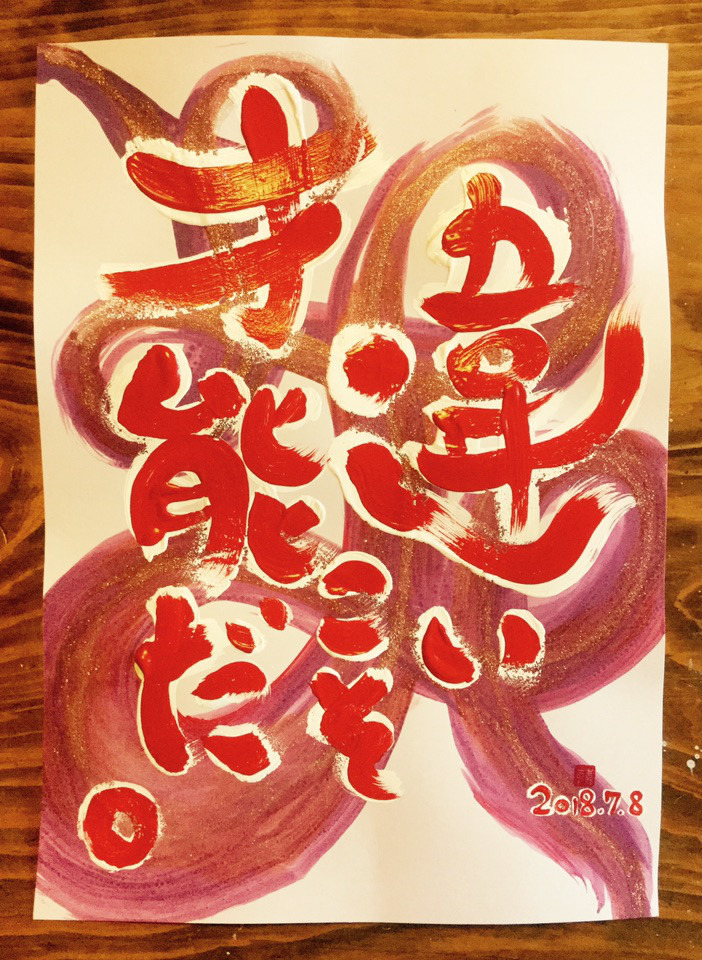 違い
こそ
才能だ。
2018.7.8